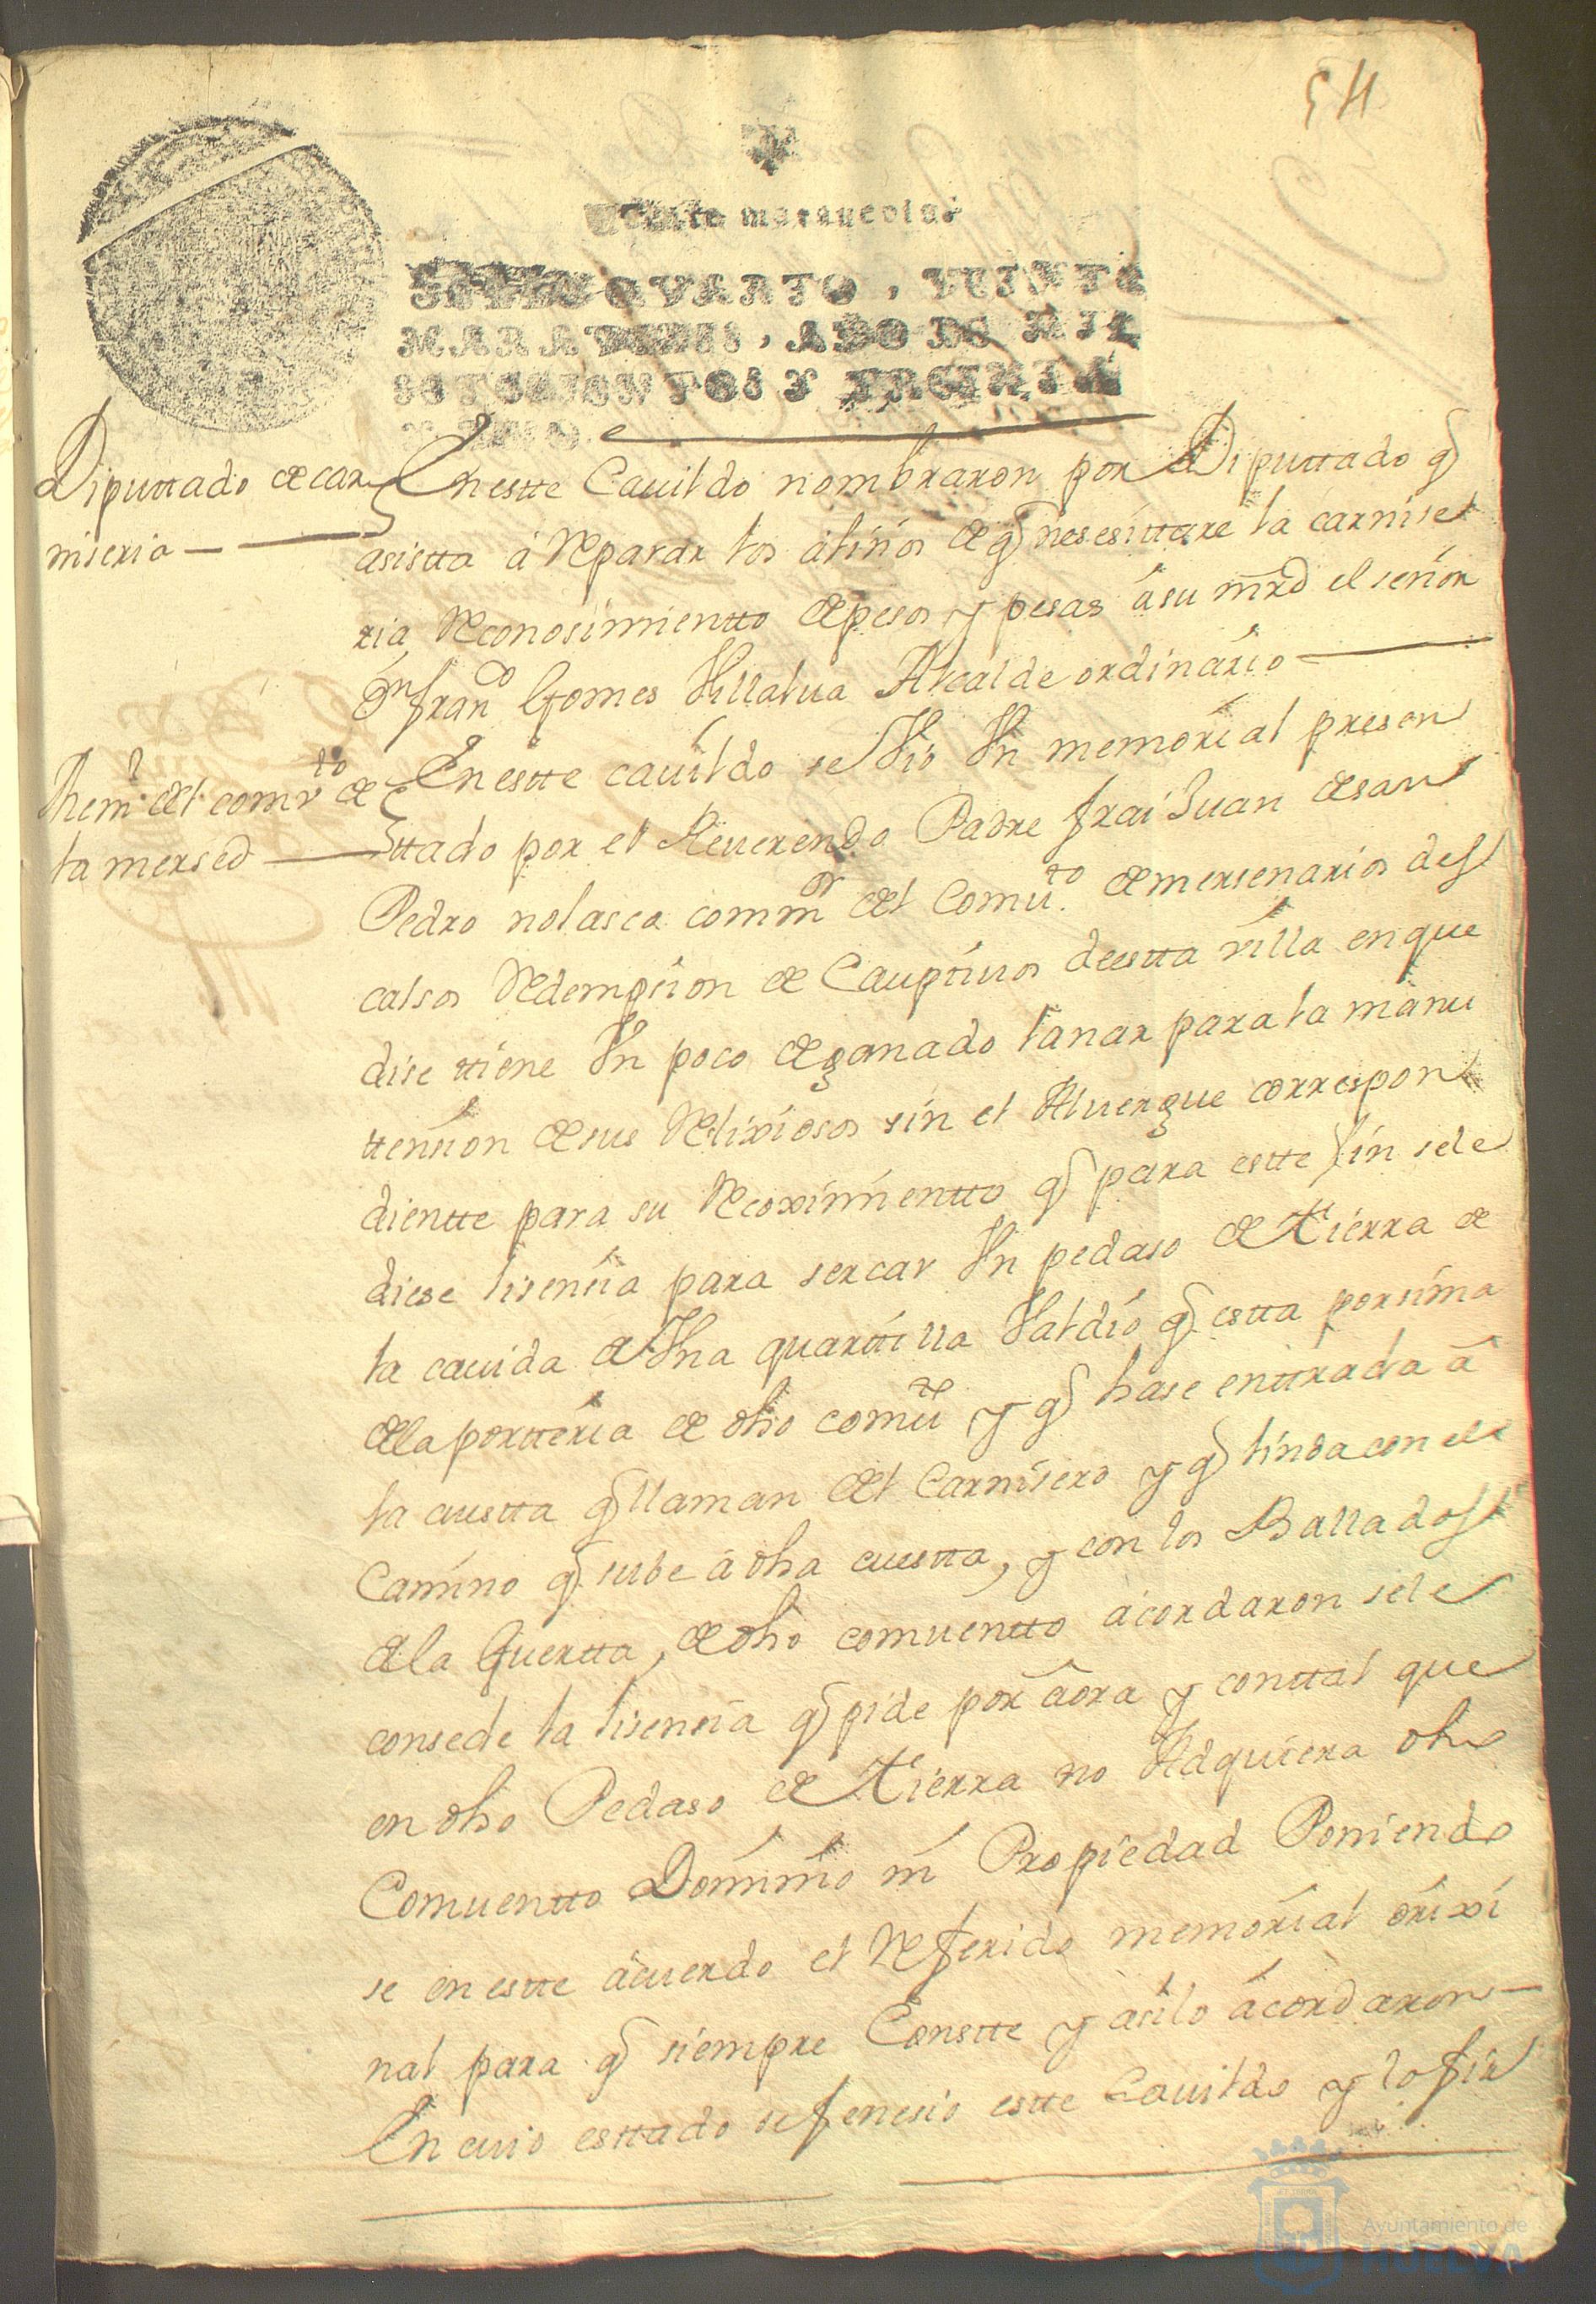 54
Veinte maravedis
SELLO QVARTO, VEINTE
MARAVEDIS, AÑO DE MIL
SETECIENTOS Y TREINTA
Y VNO.
Diputtado de car
miseria
En estte Cauildo nombraron por Diputtado q̃
asistta á Reparar los aliños de q̃ nesesittare la carnise
ria, Reconosimientto de pesos y pesas á su mrd el señor
Dn franco Gomes Villalua Alcalde ordinario
Mem.l del comv.to de
la mersed
En estte cauildo se Vio Vn memorial presen
ttado por el Reuerendo Padre frai Juan de san
Pedro nolasca comm.or del Comu.to de mersenarios des
calsos Redempsion de Cauptiuos de estta villa en que
dise ttiene Vn poco de ganado lanar para la manu
tension de sus Relixiosos sin el Aluergue correspon
dientte para su Recoximientto q̃ para estte fin se le
diese lisensia para sercar Vn pedaso de ttierra de
la cauida de Vna quarttilla Valdio q̃ estta por sima
de la portteria de dho comu.to y q̃ hase enttrada á
la cuestta q̃ llaman del Carnisero y q̃ linda con el
Camino q̃ sube á dha cuestta, y con los Ballados
de la Guertta, de dho comuentto acordaron se le
consede la lisensia q̃ pide por aora y con ttal que
en dho Pedaso de ttierra no Adquiera dho
Comuentto Dominio ni Propiedad Poniendo
se en estte acuerdo el Referido memorial orixi
nal para q̃ siempre Constte y asilo acordaron
En cuio esttado se fenesio estte Cauildo y lo fir
Ayuntamiento de
HUELVA